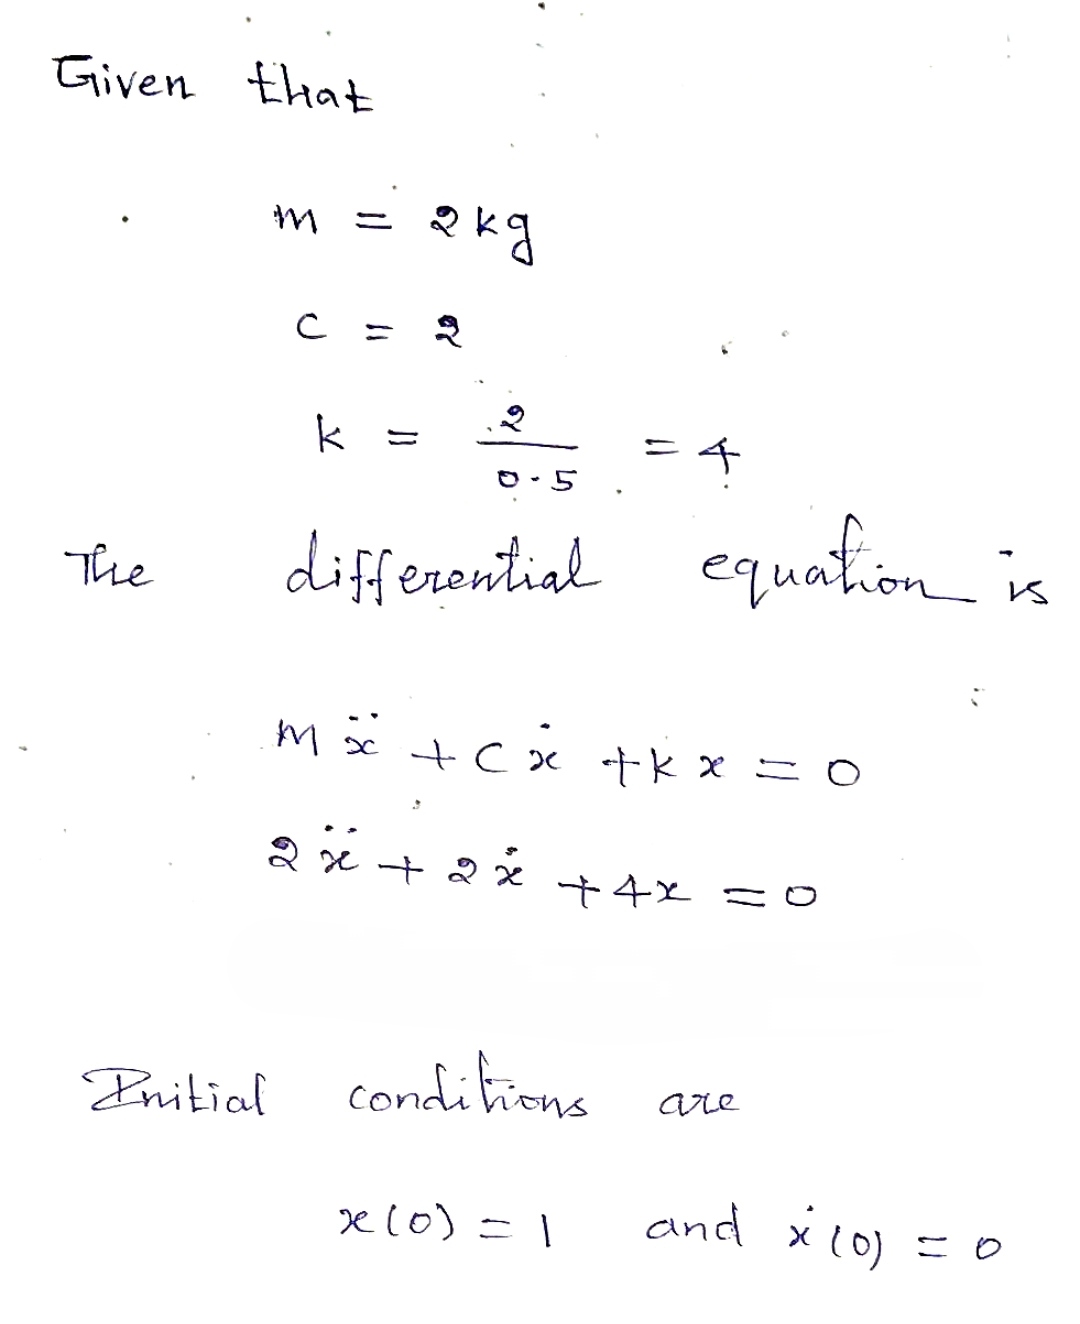 Given that
m = 2kg
c = 2
k = 2/0.5 = 4
The differential equation is
mẍ + cẋ + kx = 0
2ẍ + 2ẋ + 4x = 0
Initial conditions are
x(0) = 1 and ẋ(0) = 0